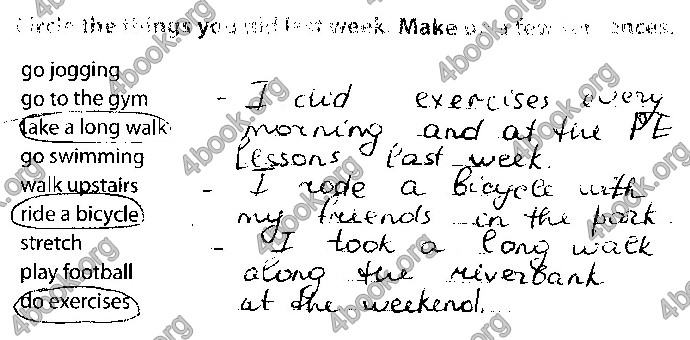 Circle the things you did last week. Make up a few sentences.
go jogging
go to the gym
take a long walk
go swimming
walk upstairs
ride a bicycle
stretch
play football
do exercises
- I did exercises every
morning and at the PE
lessons last week.
- I rode a bicycle with
my friends in the park.
- I took a long walk
along the riverbank
at the weekend.
4book.org